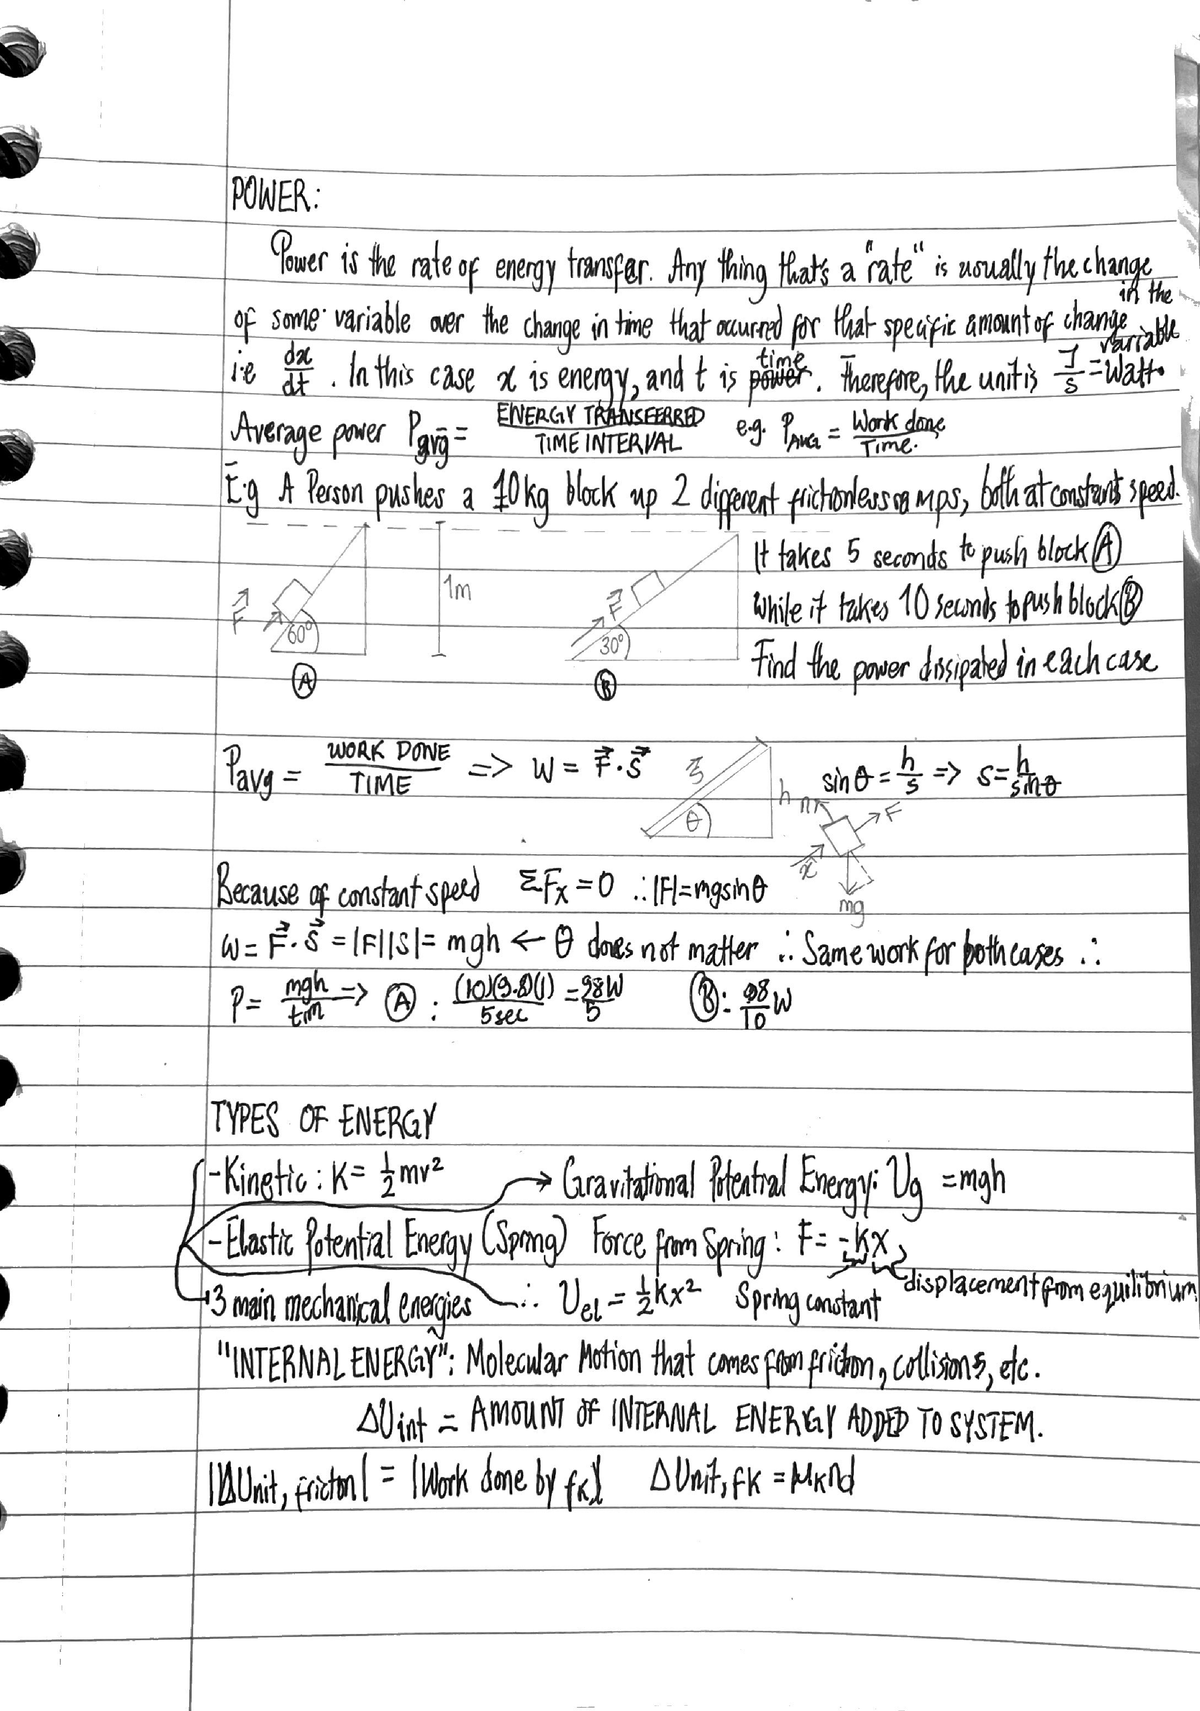 POWER:
Power is the rate of energy transfer. Any thing that's a "rate" is usually the change
of some variable over the change in time that occurred for that specific amount of change in the variable
i.e dx/dt . In this case x is energy, and t is time. Therefore, the unit is J/s = Watt.
Average power Pavg = ENERGY TRANSFERRED/TIME INTERVAL e.g. PAVG = Work done/Time.
E.g A Person pushes a 10kg block up 2 different frictionless ramps, both at constant speed.
It takes 5 seconds to push block Ⓐ
1m
F
F
while it takes 10 seconds to push block Ⓑ
60°
30°
Find the power dissipated in each case
Ⓐ
Ⓑ
Pavg = WORK DONE/TIME => W = F⃗·S⃗
S⃗
h
θ
sinθ = h/s => S = h/sinθ
n
F
x
mg
Because of constant speed ΣFx = 0 ∴ |F| = mgsinθ
W = F⃗·S⃗ = |F||S| = mgh ← θ does not matter ∴ Same work for both cases ∴
P = mgh/tim => Ⓐ : (10)(9.8)(1)/5sec = 98W/5 Ⓑ: 98/10 W
TYPES OF ENERGY
-Kinetic : K = ½mv² → Gravitational Potential Energy: Ug = mgh
-Elastic Potential Energy (Spring) Force from Spring : F = -kx
displacement from equilibrium
3 main mechanical energies ∴ Uel = ½kx² Spring constant
"INTERNAL ENERGY": Molecular Motion that comes from friction, collisions, etc.
ΔUint = AMOUNT OF INTERNAL ENERGY ADDED TO SYSTEM.
|ΔUint, friction| = |Work done by fk| ΔUint, fk = μknd